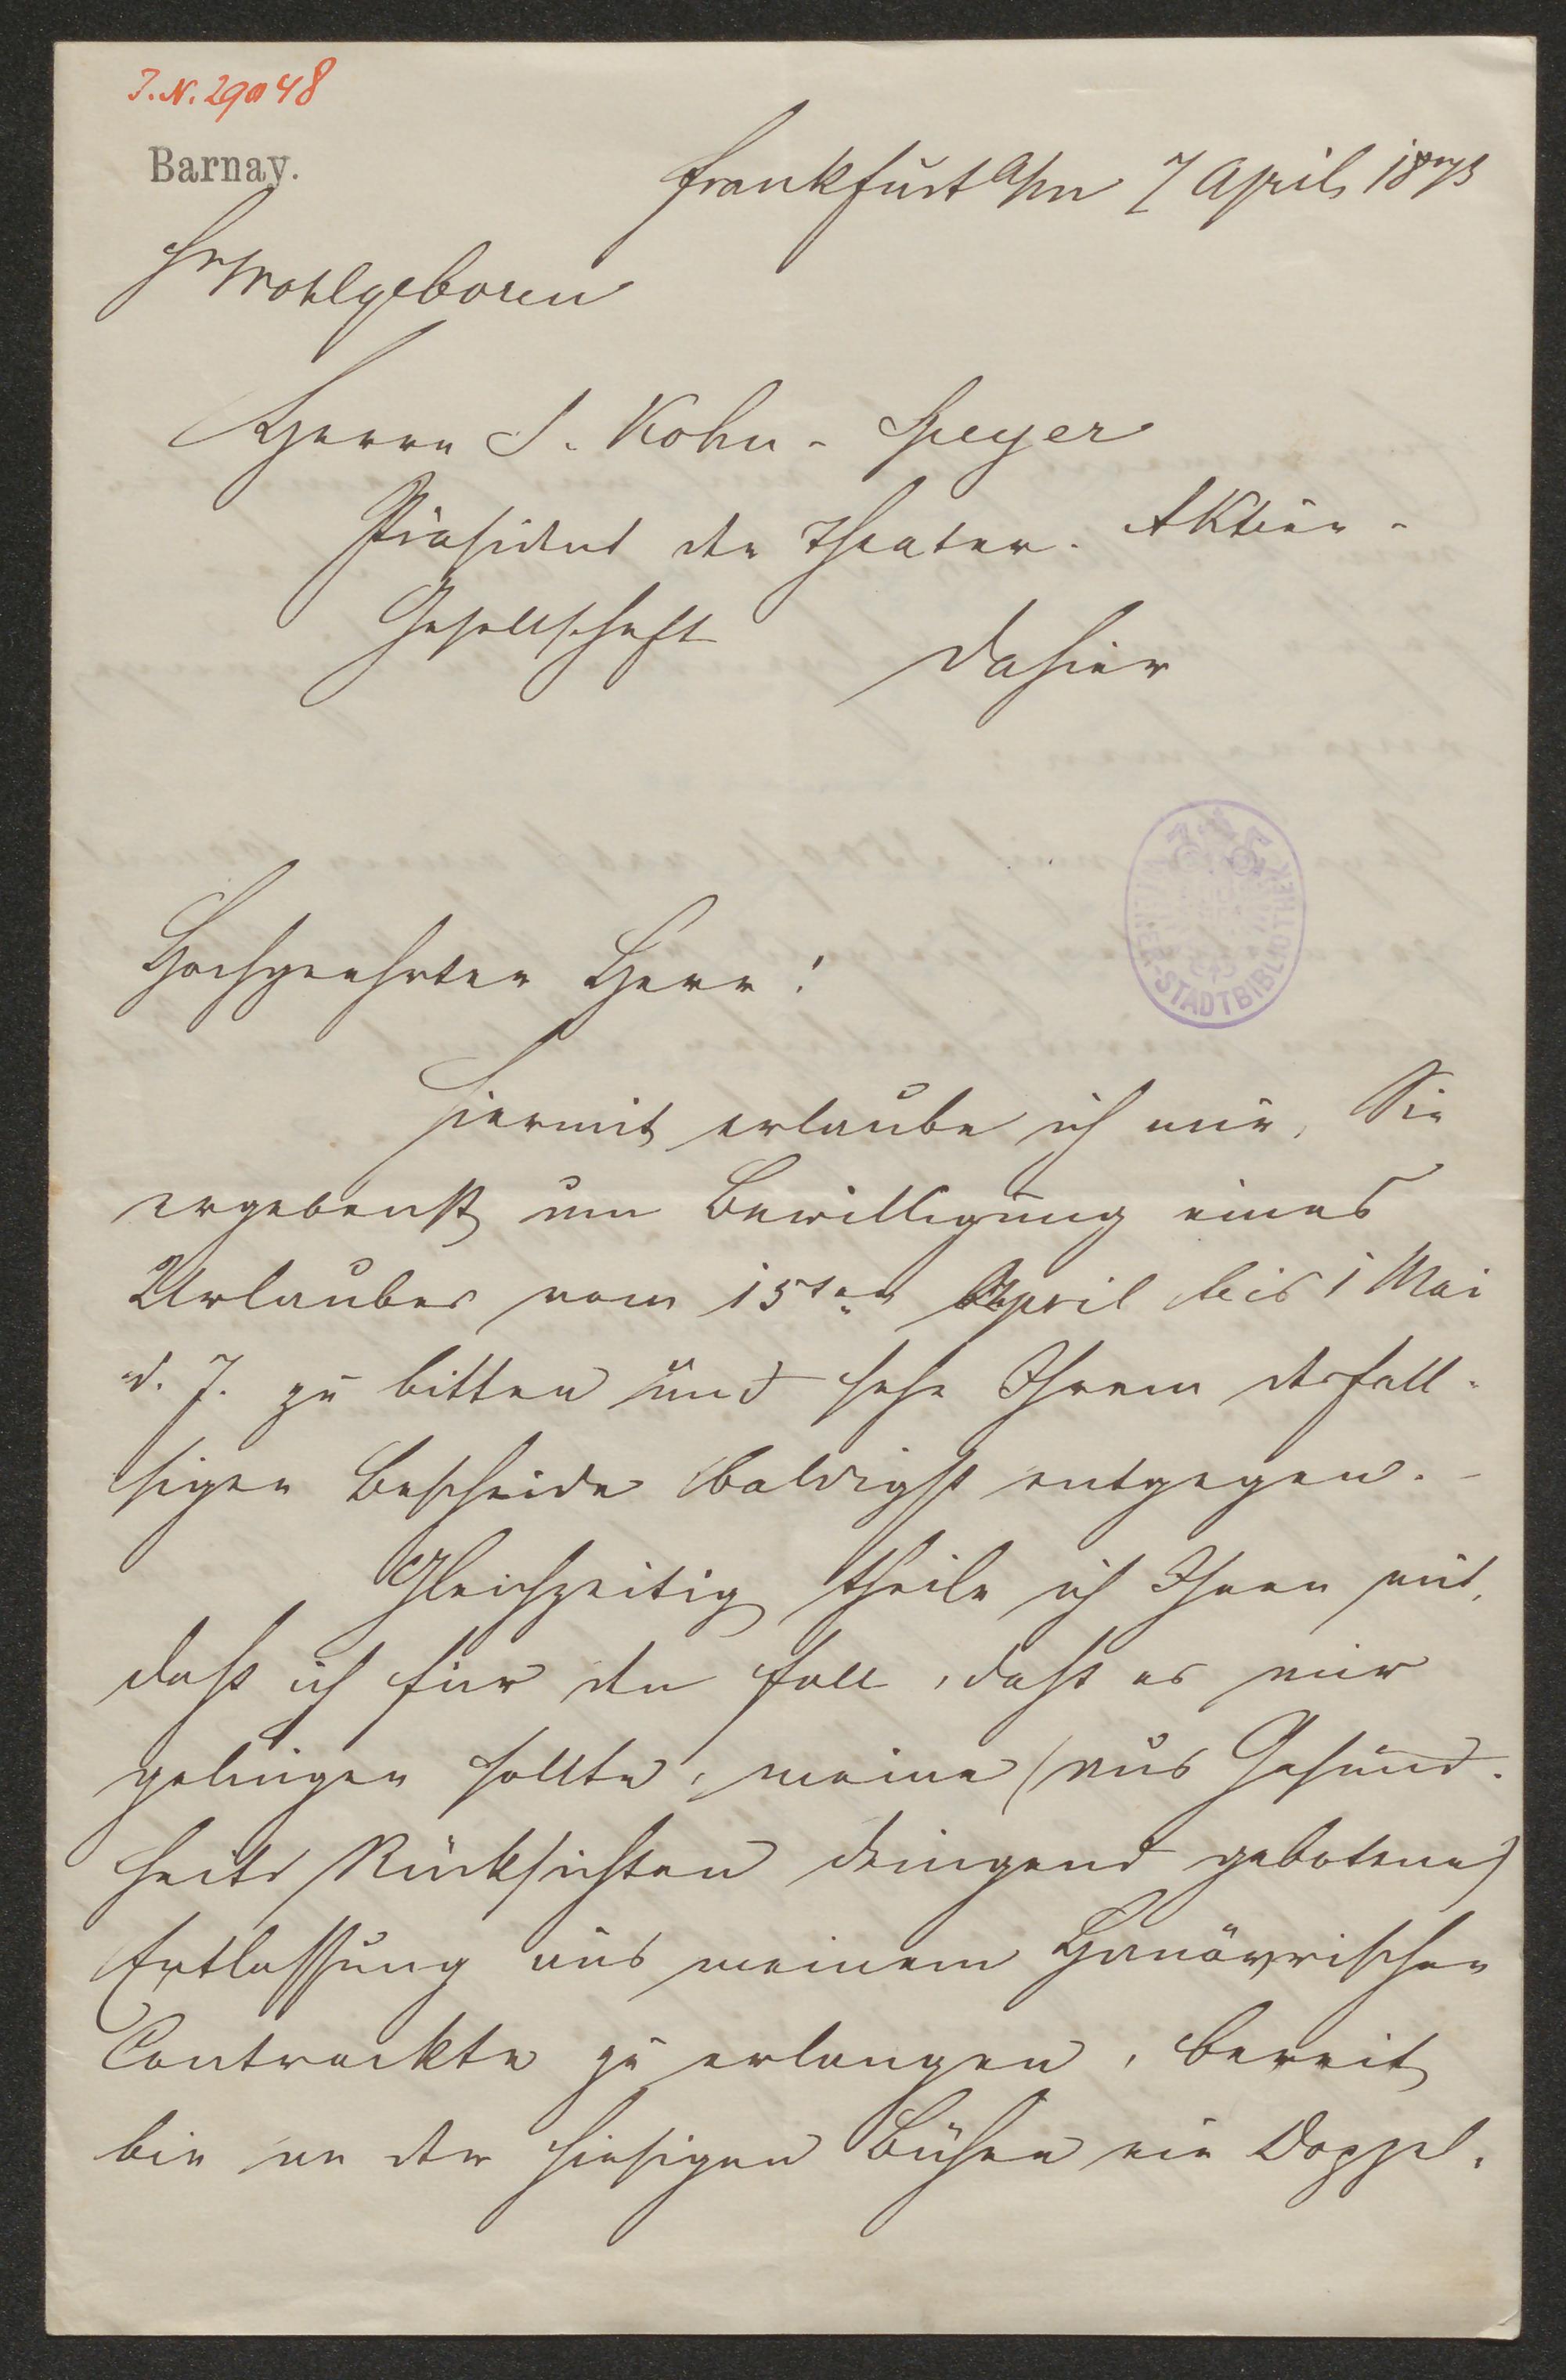 J. N. 29048
Barnay.
Frankfurt a/m 7 April 1873
Sr Wohlgeboren
Herrn S. Kohn-Speyer
Präsident der Theater-Aktien-
Gesellschaft
dahier
WIENER-STADTBIBLIOTHEK
Hochgeehrter Herr!
Hiermit erlaube ich mir, Sie
ergebenst um Bewilligung eines
Urlaubes vom 15ten April bis 1 Mai
d. J. zu bitten und sehe Ihrem desfall-
sigen Bescheide baldigst entgegen. –
Gleichzeitig theile ich Ihnen mit,
daß ich für den Fall, daß es mir
gelingen sollte, meine (aus Gesund-
heits Rücksichten dringend gebotene)
Entlassung aus meinem Hanövrischen
Contrackte zu erlangen, bereit
bin an der hiesigen Bühne ein Doppel-